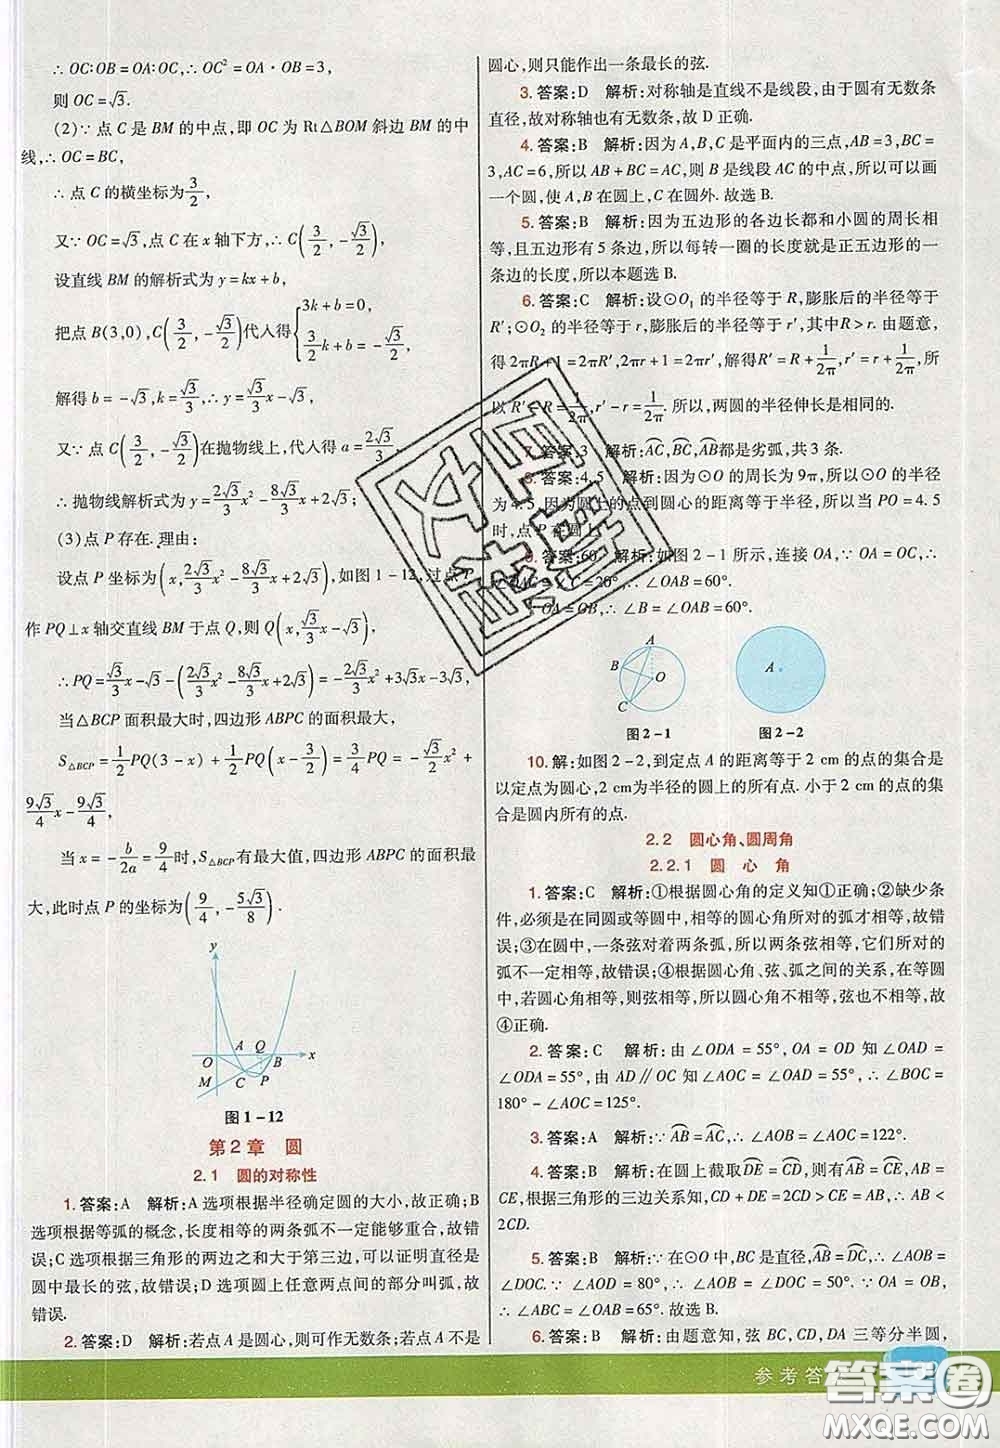 ∴ OC∶OB = OA∶OC,∴ OC² = OA · OB = 3,
则 OC = √3.
(2)∵ 点 C 是 BM 的中点,即 OC 为 Rt△BOM 斜边 BM 的中
线,∴ OC = BC,
∴ 点 C 的横坐标为 3/2,
又∵ OC = √3,点 C 在 x 轴下方,∴ C(3/2, -√3/2),
设直线 BM 的解析式为 y = kx + b,
把点 B(3,0),C(3/2, -√3/2)代入得{3k + b = 0, 3/2 k + b = -√3/2,
解得 b = -√3,k = √3/3,∴ y = √3/3 x - √3.
又∵ 点 C(3/2, -√3/2)在抛物线上,代入得 a = 2√3/3,
∴ 抛物线解析式为 y = 2√3/3 x² - 8√3/3 x + 2√3;
(3)点 P 存在.理由:
设点 P 坐标为(x, 2√3/3 x² - 8√3/3 x + 2√3),如图 1 - 12,过点 P
作 PQ⊥x 轴交直线 BM 于点 Q,则 Q(x, √3/3 x - √3),
∴ PQ = √3/3 x - √3 - (2√3/3 x² - 8√3/3 x + 2√3) = -2√3/3 x² + 3√3x - 3√3,
当△BCP 面积最大时,四边形 ABPC 的面积最大,
S△BCP = 1/2 PQ(3 - x) + 1/2 PQ(x - 3/2) = 3/4 PQ = -√3/2 x² +
9√3/4 x - 9√3/4,
当 x = -b/2a = 9/4 时,S△BCP有最大值,四边形 ABPC 的面积最
大,此时点 P 的坐标为(9/4, -5√3/8).
y
A Q
O B x
M C P
图 1 - 12
第 2 章 圆
2.1 圆的对称性
1. 答案:A 解析:A 选项根据半径确定圆的大小,故正确;B
选项根据等弧的概念,长度相等的两条弧不一定能够重合,故错
误;C 选项根据三角形的两边之和大于第三边,可以证明直径是
圆中最长的弦,故错误;D 选项圆上任意两点间的部分叫弧,故
错误.
2. 答案:D 解析:若点 A 是圆心,则可作无数条;若点 A 不是
圆心,则只能作出一条最长的弦.
3. 答案:D 解析:对称轴是直线不是线段,由于圆有无数条
直径,故对称轴也有无数条,故 D 正确.
4. 答案:B 解析:因为 A,B,C 是平面内的三点,AB = 3,BC =
3,AC = 6,所以 AB + BC = AC,所以 B 是线段 AC 的中点,所以可以
画一个圆,使 A,B 在圆上,C 在圆外. 故选 B.
5. 答案:B 解析:因为五边形的各边长都和小圆的周长相
等,且五边形有 5 条边,所以每转一圈的长度就是正五边形的一
条边的长度,所以本题选 B.
6. 答案:C 解析:设⊙O₁ 的半径等于 R,膨胀后的半径等于
R′;⊙O₂ 的半径等于 r,膨胀后的半径等于 r′,其中R > r. 由题意,
得 2πR + 1 = 2πR′,2πr + 1 = 2πr′,解得R′ = R + 1/2π,r′ = r + 1/2π,所
以 R′ - R = 1/2π,r′ - r = 1/2π. 所以,两圆的半径伸长是相同的.
7. 答案:3 解析:AC,BC,AB都是劣弧,共 3 条.
8. 答案:4.5 解析:因为⊙O 的周长为 9π,所以⊙O 的半径
为 4.5,因为圆上的点到圆心的距离等于半径,所以当 PO = 4.5
时,点 P 在圆上.
9. 答案:60° 解析:如图 2 - 1 所示,连接 OA,∵ OA = OC,∴
∠OAC = ∠C = 20°,∴ ∠OAB = 60°.
∵ OA = OB,∴ ∠OBA = ∠OAB = 60°.
A
B
O
C
图 2 - 1
A
图 2 - 2
10. 解:如图 2 - 2,到定点 A 的距离等于 2 cm 的点的集合是
以定点为圆心,2 cm为半径的圆上的所有点. 小于 2 cm 的点的集
合是圆内所有的点.
2.2 圆心角、圆周角
2.2.1 圆 心 角
1. 答案:C 解析:①根据圆心角的定义知①正确;②缺少条
件,必须是在同圆或等圆中,相等的圆心角所对的弧才相等,故错
误;③在圆中,一条弦对着两条弧,所以两条弦相等,它们所对的
弧不一定相等,故错误;④根据圆心角、弦、弧之间的关系,在等圆
中,若圆心角相等,则弦相等,所以圆心角不相等,弦也不相等,故
④正确.
2. 答案:C 解析:由 ∠ODA = 55°,OA = OD 知 ∠OAD =
∠ODA = 55°,由 AD∥OC 知 ∠COA = ∠OAD = 55°,∴ ∠BOC =
180° - ∠AOC = 125°.
3. 答案:A 解析:∵ AB = AC,∴ ∠AOB = ∠AOC = 122°.
4. 答案:B 解析:在圆上截取DE = CD,则有 AB = CE,AB =
CE,根据三角形的三边关系知,CD + DE = 2CD > CE = AB,∴ AB <
2CD.
5. 答案:B 解析:∵ 在⊙O 中,BC 是直径,AB = DC,∴ ∠AOB =
∠DOC. ∵ ∠AOD = 80°,∴ ∠AOB = ∠DOC = 50°. ∵ OA = OB,
∴ ∠ABC = ∠OAB = 65°. 故选 B.
6. 答案:B 解析:由题意知,弦 BC,CD,DA 三等分半圆,
参 考 答
答案卷
MXQE.COM